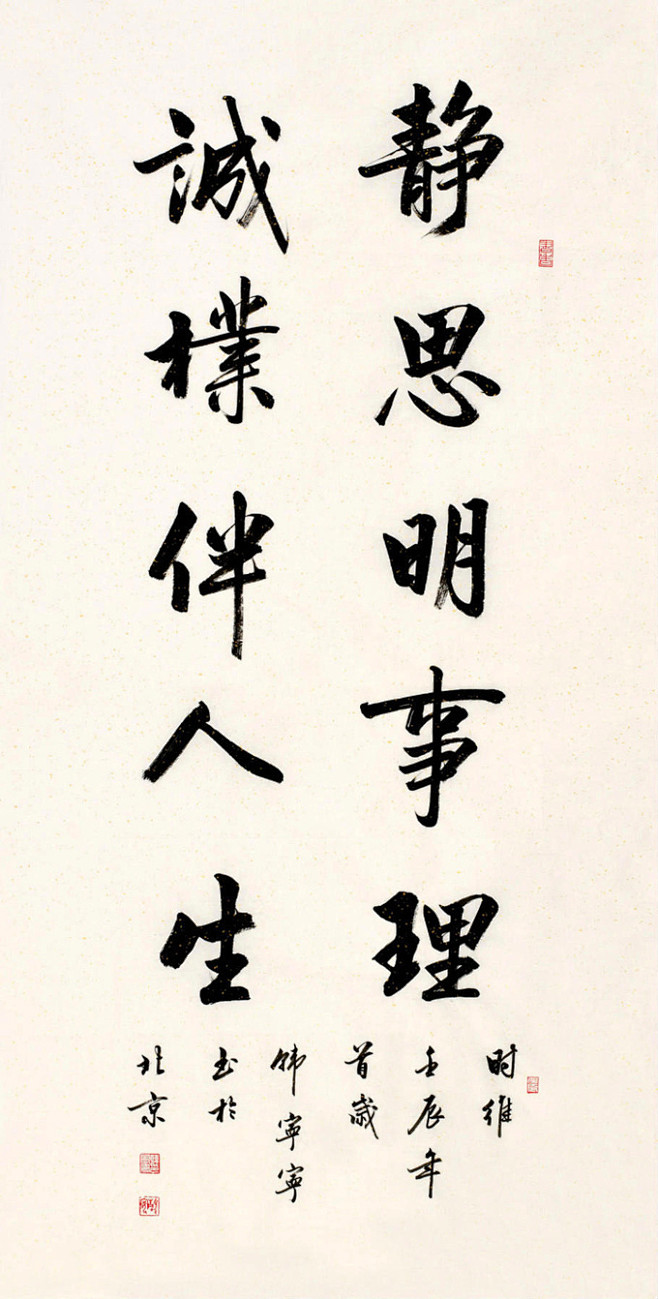 静思明事理
誠樸伴人生
时维
壬辰年
首歲
韩宁宁
书於
北京